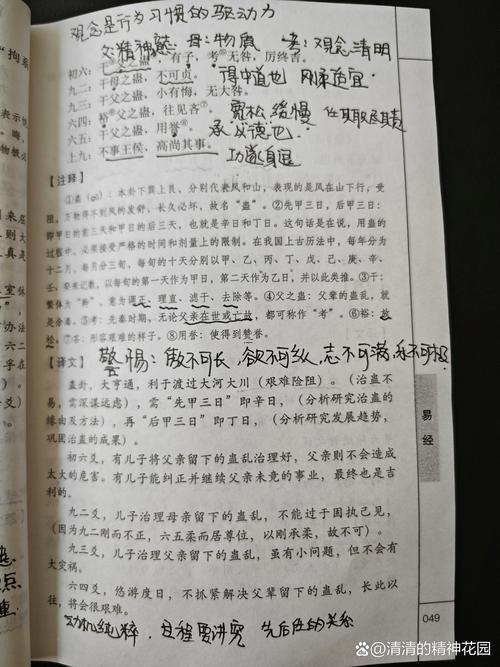 观念是行为习惯的驱动力
父:精神 母:物质 考:观念清明
初六: 有子, 考⑤无咎, 厉终吉。
九二: 干母之蛊, 不可贞。 得中道也 刚柔适宜
九三: 干父之蛊, 小有悔, 无大咎。
六四: 裕⑥父之蛊, 往见吝⑦。 宽松 缓慢 任其取尽其责
六五: 干父之蛊, 用誉⑧。 承以德也
上九: 不事王侯, 高尚其事。 功遂身退
【注释】
①蛊(gǔ): 本卦下巽上艮, 分别代表风和山, 表现的是风在山下行, 受
阻, 万物得不到风的发舒, 长久必坏, 故名“蛊”。②先甲三日, 后甲三日:
即甲日的前三天和甲日的后三天, 也就是辛日和丁日。这句话是在说, 用蛊的
过程中, 必须接受严格的时间和剂量上的限制。在我国上古历法中, 每年分为
十二月, 每月分三旬, 每旬的十天分别以甲、乙、丙、丁、戊、己、庚、辛、
壬、癸来记载, 以每旬的第一天作为甲日, 第二天作为乙日, 并以此类推。③干:
繁体为“幹”, 意为调正、理直、滤干、去除等。④父之蛊: 父辈的蛊乱, 就
是余毒。⑤考: 先秦时期, 无论父亲在世或亡故, 都可称作“考”。⑥裕: 宽
松。⑦吝: 形容艰难的样子。⑧用誉: 使得到赞誉。
【译文】 警惕: 傲不可长, 欲不可纵, 志不可满, 乐不可极
蛊卦, 大亨通, 利于渡过大河大川(艰难险阻)。(治蛊不
易, 需深谋远虑), 需“先甲三日”即辛日, (分析研究治蛊的
缘由及方法), 再“后甲三日”即丁日, (分析研究发展趋势,
巩固治蛊的成果)。
初六爻, 有儿子将父亲留下的蛊乱治理好, 父亲则不会造成
太大的危害。有儿子能纠正并继续父亲未竟的事业, 最终也是吉
利的。
九二爻, 儿子治理母亲留下的蛊乱, 不能过于固执己见,
(因为九二刚而不正, 六五柔而居尊位, 以刚承柔, 故不可)。
九三爻, 儿子治理父亲留下的蛊乱, 虽有小问题, 但不会有
大灾祸。
六四爻, 悠游度日, 不抓紧解决父辈留下的蛊乱, 长此以
往, 将会很艰难。
动机纯粹, 过程要讲究 先后左的关系
易经
049
@清清的精神花园